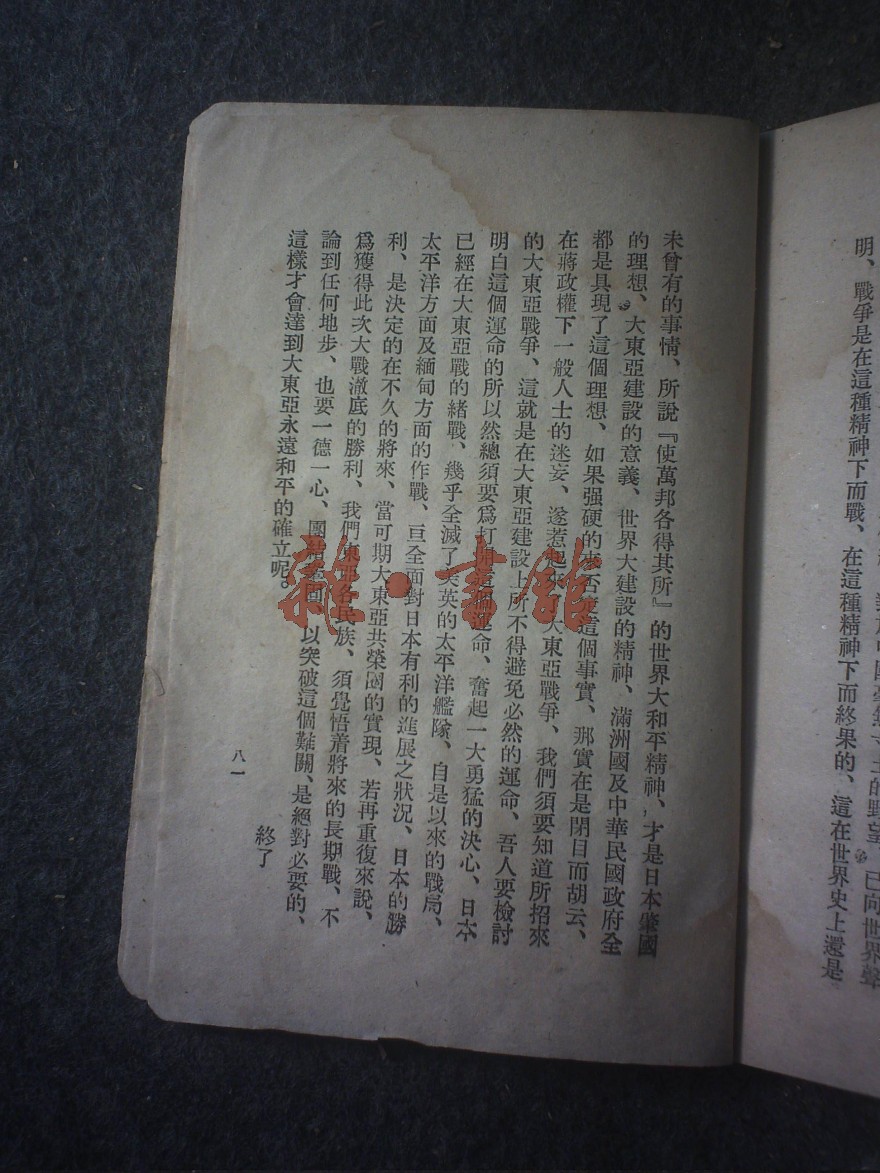 明、戰爭是在這種精神下而戰、在這種精神下而終果的、這在世界史上還是
未曾有的事情、所說『使萬邦各得其所』的世界大和平精神、才是日本肇國
的理想、大東亞建設的意義、世界大建設的精神、滿洲國及中華民國政府全
都是具現了這個理想、如果强硬的來否定這個事實、那實在是閉目而胡云、
在蔣政權下一般人士的迷妄、遂惹起來了大東亞戰爭、我們須要知道所招來
的大東亞戰爭、這就是在大東亞建設上所不得避免必然的運命、吾人要檢討
明白這個運命的所以然總須要爲打開這個運命、奮起一大勇猛的決心、日本
已經在大東亞戰的緒戰、幾乎全滅了美英的太平洋艦隊、自是以來的戰局、
太平洋方面及緬甸方面的作戰、亘全面對日本有利的進展之狀況、日本的勝
利、是決定的在不久的將來、當可期大東亞共榮圈的實現、若再重復來說、
爲獲得此次大戰澈底的勝利、我們東亞各民族、須覺悟着將來的長期戰、不
論到任何地步、也要一德一心、團結 以突破這個難關、是絕對必要的、
這樣才會達到大東亞永遠和平的確立呢。
終了
八一
雜·書館